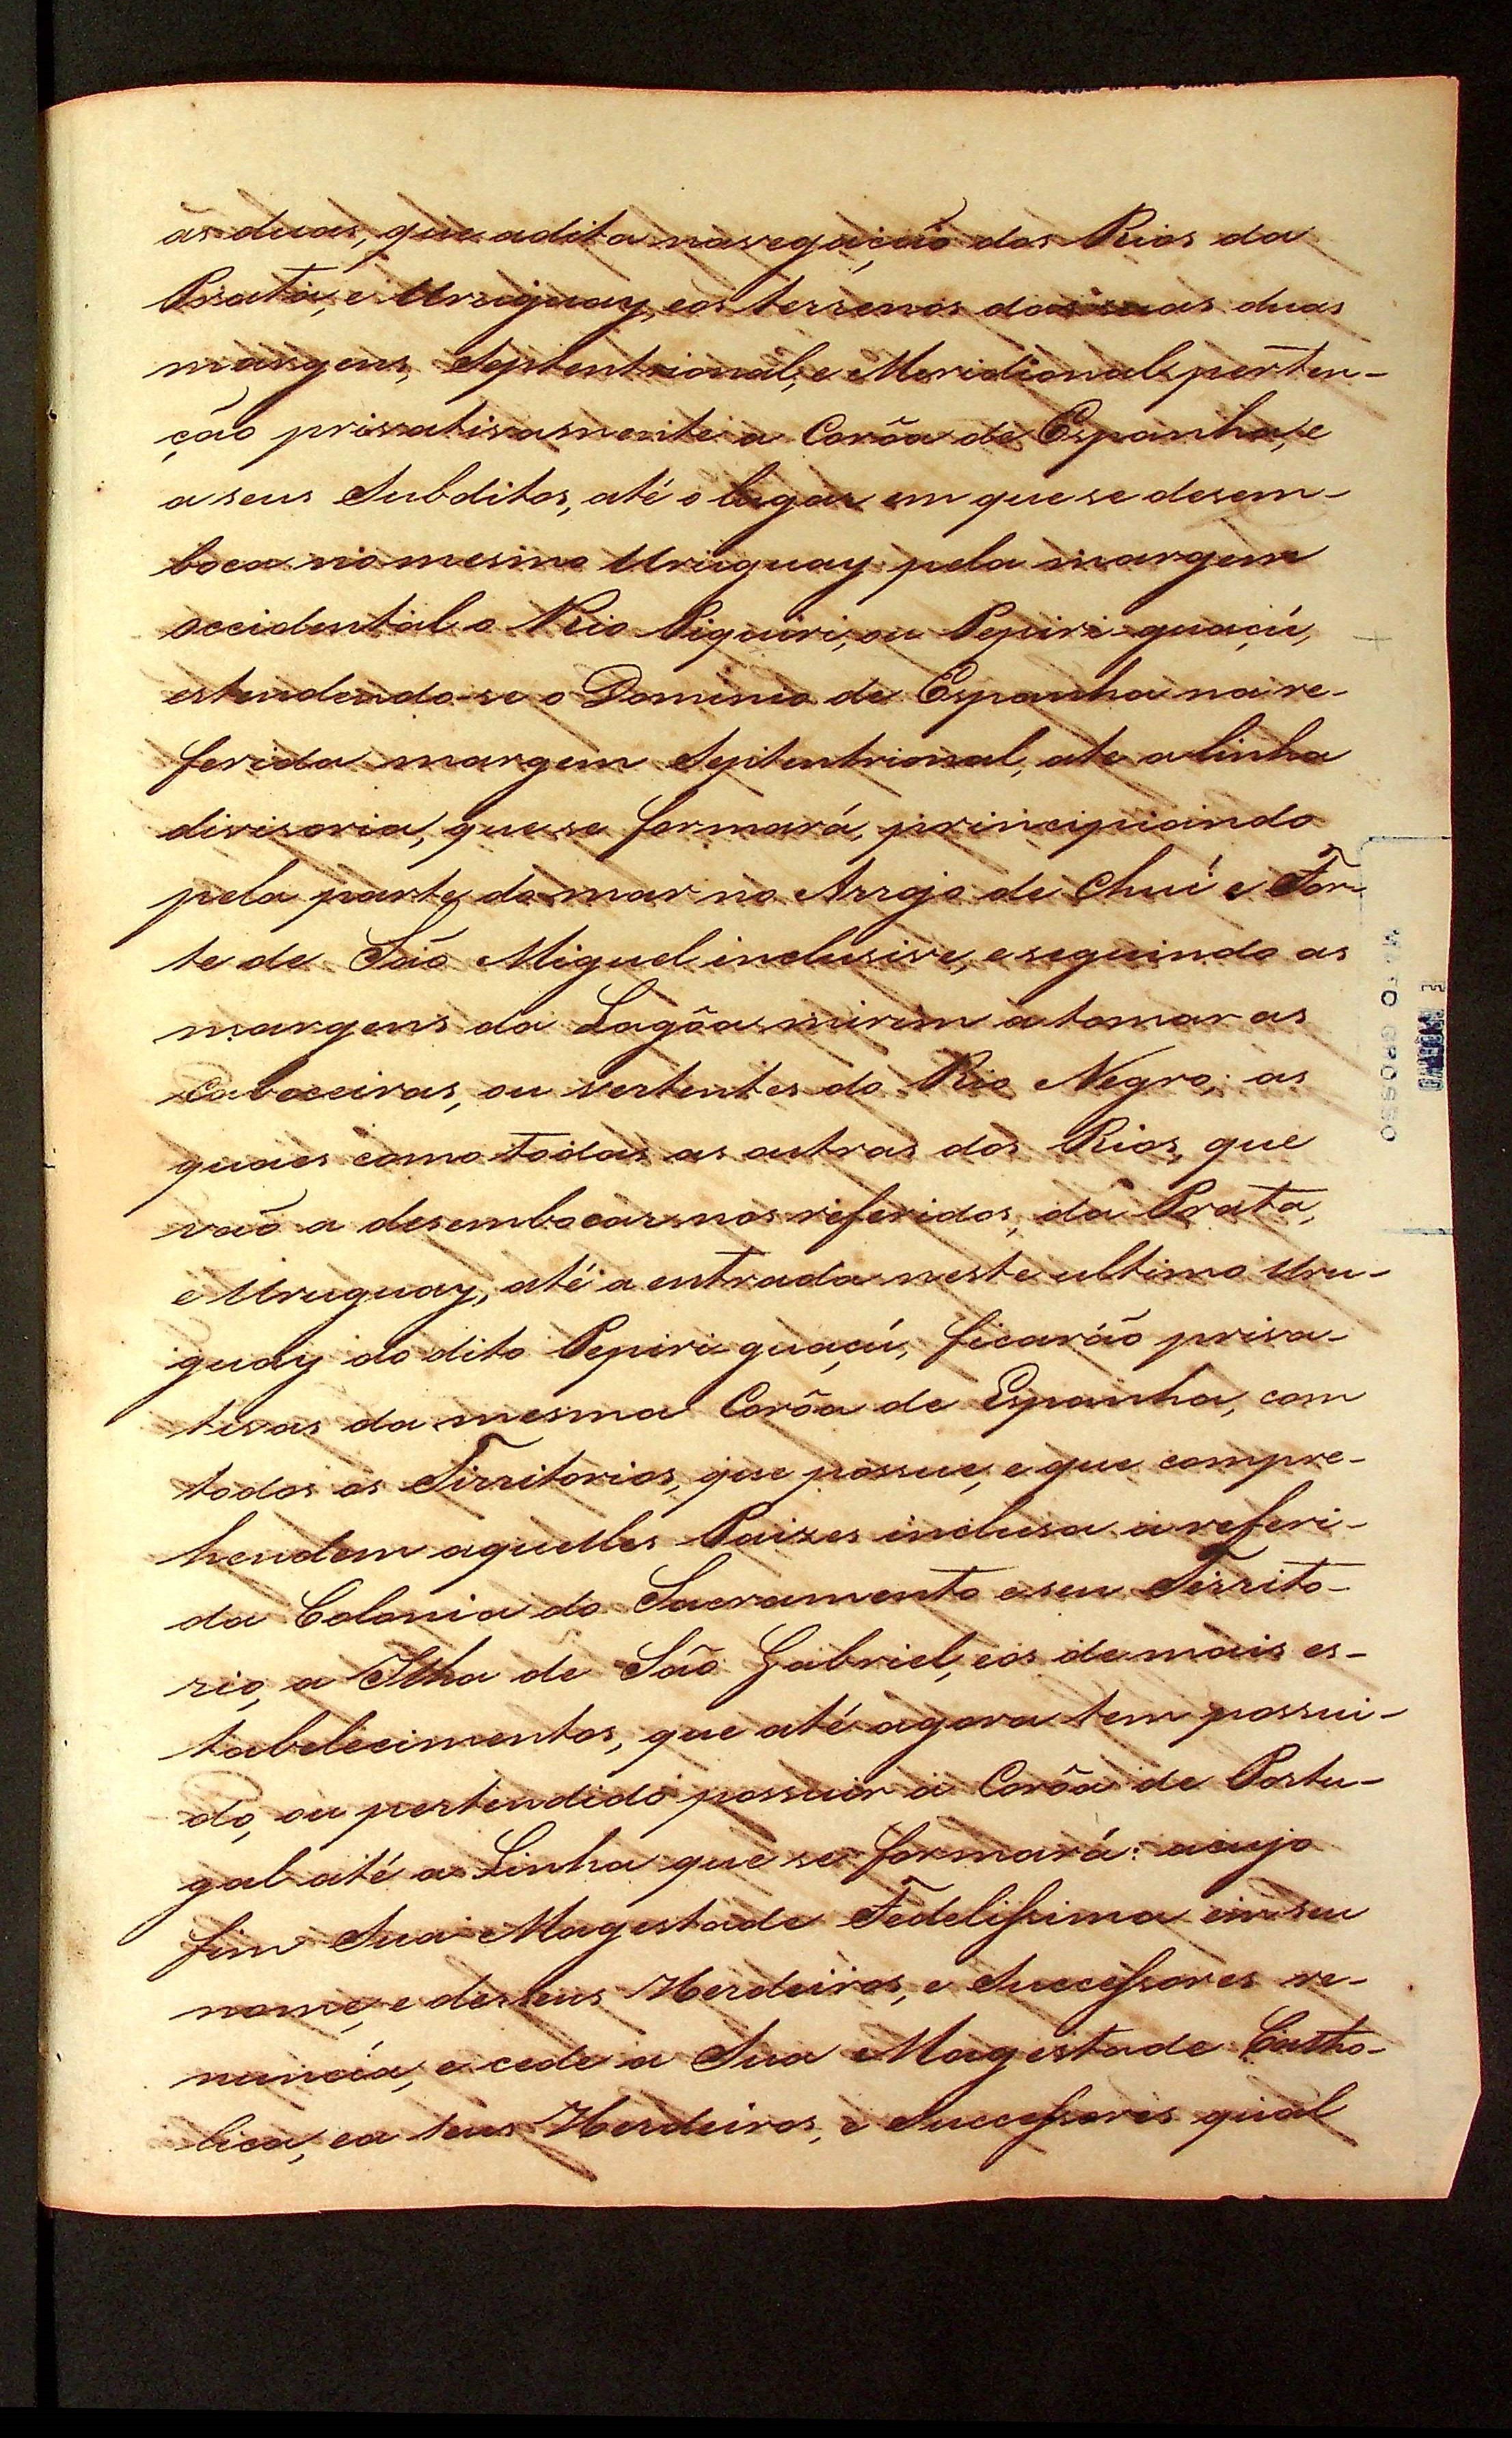 as duas, que a dita navegação dos Rios da
Prata, e Uruguay, e os terrenos das suas duas
margens, Septentrional, e Meridional perten-
ção privativamente a Corôa de Espanha, e
a seus Subditos, até o lugar em que se desem-
boca no mesmo Uruguay pela margem
occidental o Rio Piquiri, ou Pepiri-guaçú,
estendendo-se o Dominio de Espanha na re-
ferida margem Septentrional, ate a linha
divisoria, que se formará, principiando
pela parte do mar no Arrojo de Chuí e For-
te de São Miguel inclusive, e seguindo as
margens da Lagôa mirim a tomar as
cabeceiras, ou vertentes do Rio Negro; as
quaes como todas as outras dos Rios, que
vaõ a desembocar nos referidos, da Prata,
e Uruguay, até a entrada neste ultimo Uru-
guay do dito Pepiri-guaçú, ficarão priva-
tivas da mesma Corôa de Espanha, com
todos os Tirritorios, que possue, e que compre-
hendem aquelles Paizes inclusa a referi-
da Colonia do Sacramento e seu Territo-
rio, a Ilha de São Gabriel, e os demais es-
tabelecimentos, que até agora tem possui-
do, ou pertendido possuir a Corôa de Portu-
gal até a Linha que se formará: a cujo
fim Sua Magestade Fedelissima em seu
nome, e de seus Herdeiros, e Successores re-
nuncía, e cede a Sua Magestade Catho-
lica, e a seus Herdeiros, e Successores qual
MATO GROSSO